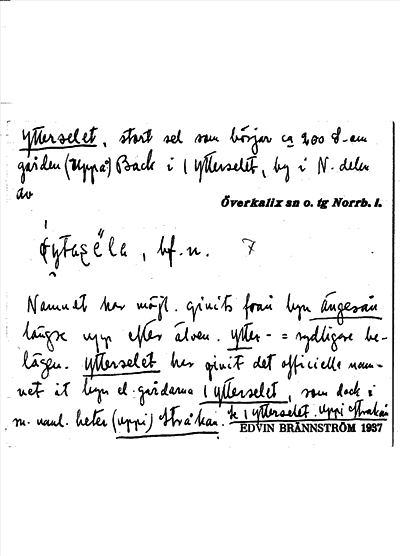 Ytterselet, stort sel som börjar ca 200 S-om
gården (Uppå) Back i 1 Ytterselet, by i N. delen
av
Överkalix sn o. tg Norrb. l.
bf. n. 7
Namnet har möjl. givits från byn Ängesån
längre upp efter älven. Ytter- = sydligare be-
lägen. Ytterselet har givit det officiella nam-
net åt byn el. gårdarna 1 Ytterselet, som dock i
m. uttal heter (Uppi) Stråkan. Se 1 Ytterselet. Uppi Stråkan
EDVIN BRÄNNSTRÖM 1937